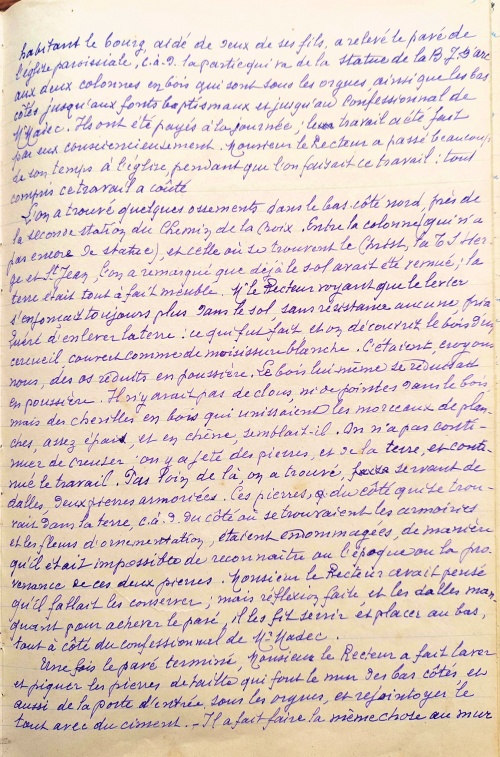 habitant le bourg, aidé de deux de ses fils, a relevé le pavé de
l'église paroissiale, c.à.d. la partie qui va de la statue de la B. J. d'arc
aux deux colonnes en bois qui sont sous les orgues, ainsi que les bas
côtés jusqu'aux fonts baptismaux et jusqu'au Confessionnal de
Mr Masec. Ils ont été payés à la journée; leur travail a été fait
par eux consciencieusement. Monsieur le Recteur a passé beaucoup
de son temps à l'église, pendant que l'on faisait ce travail: tout
compris ce travail a coûté
L'on a trouvé quelques ossements dans le bas côté nord, près de
la seconde station du Chemin de la Croix. Entre la colonne (qui n'a
pas encore de statue), et celle où se trouvent le Christ, la T. S. Vier-
ge et St Jean, l'on a remarqué que déjà le sol avait été remué; la
terre était tout à fait meuble. Mr le Recteur voyant que le levier
s'enfonçait toujours plus dans le sol, sans résistance aucune pria
d'enlever la terre: ce qui fut fait et on découvrit le bois d'un
cercueil couvert comme de moisissure blanche. C'étaient, croyons
nous, des os réduits en poussière. Le bois lui même se réduisait
en poussière. Il n'y avait pas de clous, ni de pointes dans le bois,
mais des chevilles en bois qui unissaient les morceaux de plan-
ches, assez épais, et en chêne, semblait-il. On n'a pas conti-
nuer de creuser: on y a jeté des pierres, et de la terre, et conti-
nué le travail. Pas loin de là, on a trouvé, servant de
dalles, deux pierres armoriées. Ces pierres, du côté qui se trou-
vait dans la terre, c.à.d. du côté où se trouvaient les armoiries
et les fleurs d'ornementation, étaient endommagées, de manière
qu'il était impossible de reconnaître ou l'époque ou la pro-
venance de ces deux pierres. Monsieur le Recteur avait pensé
qu'il fallait les conserver; mais réflexion faite et les dalles man-
quant pour achever le pavé, il les fit servir et placer au bas,
tout à côté du confessionnal de Mr Masec.
Une fois le pavé terminé, Monsieur le Recteur a fait laver
et piquer les pierres de taille qui font le mur des bas côtés, et
aussi de la porte d'entrée, sous les orgues, et rejointoyer le
tout avec du ciment. - Il a fait faire la même chose au mur